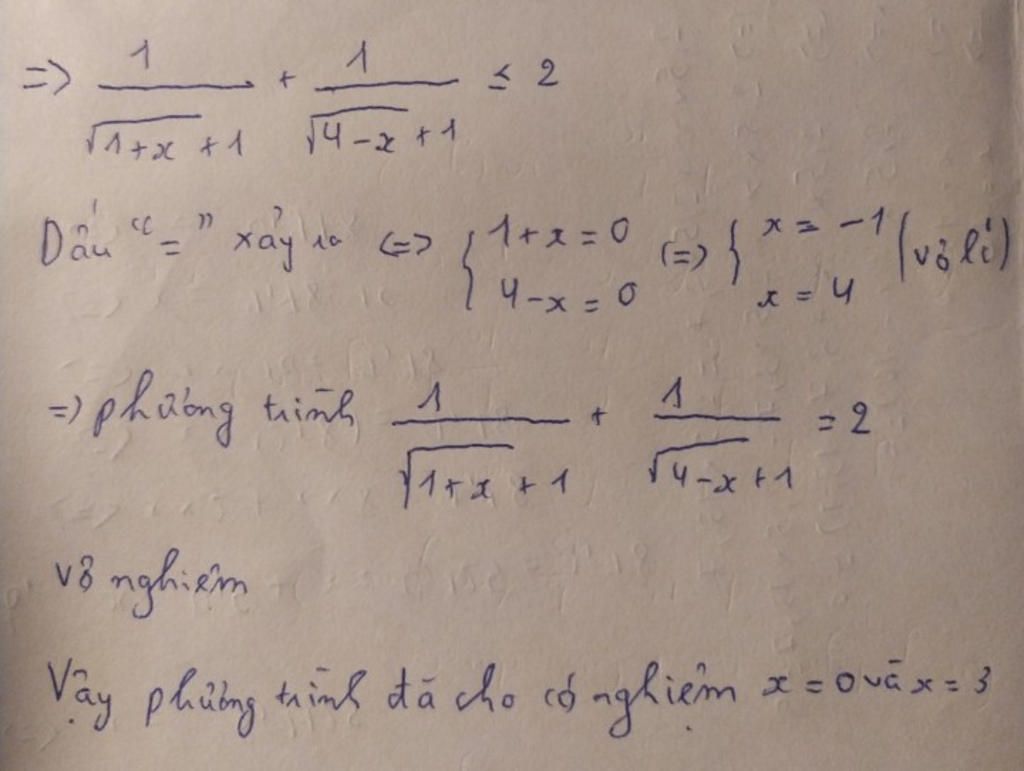 => 1/(√(1+x) + 1) + 1/(√(4-x) + 1) ≤ 2
Dấu "=" xảy ra <=> { 1+x=0 ; 4-x=0 (=) { x=-1 ; x=4 (vô lí)
=) phương trình 1/(√(1+x) + 1) + 1/(√(4-x) + 1) = 2
vô nghiệm
Vậy phương trình đã cho có nghiệm x=0 và x=3